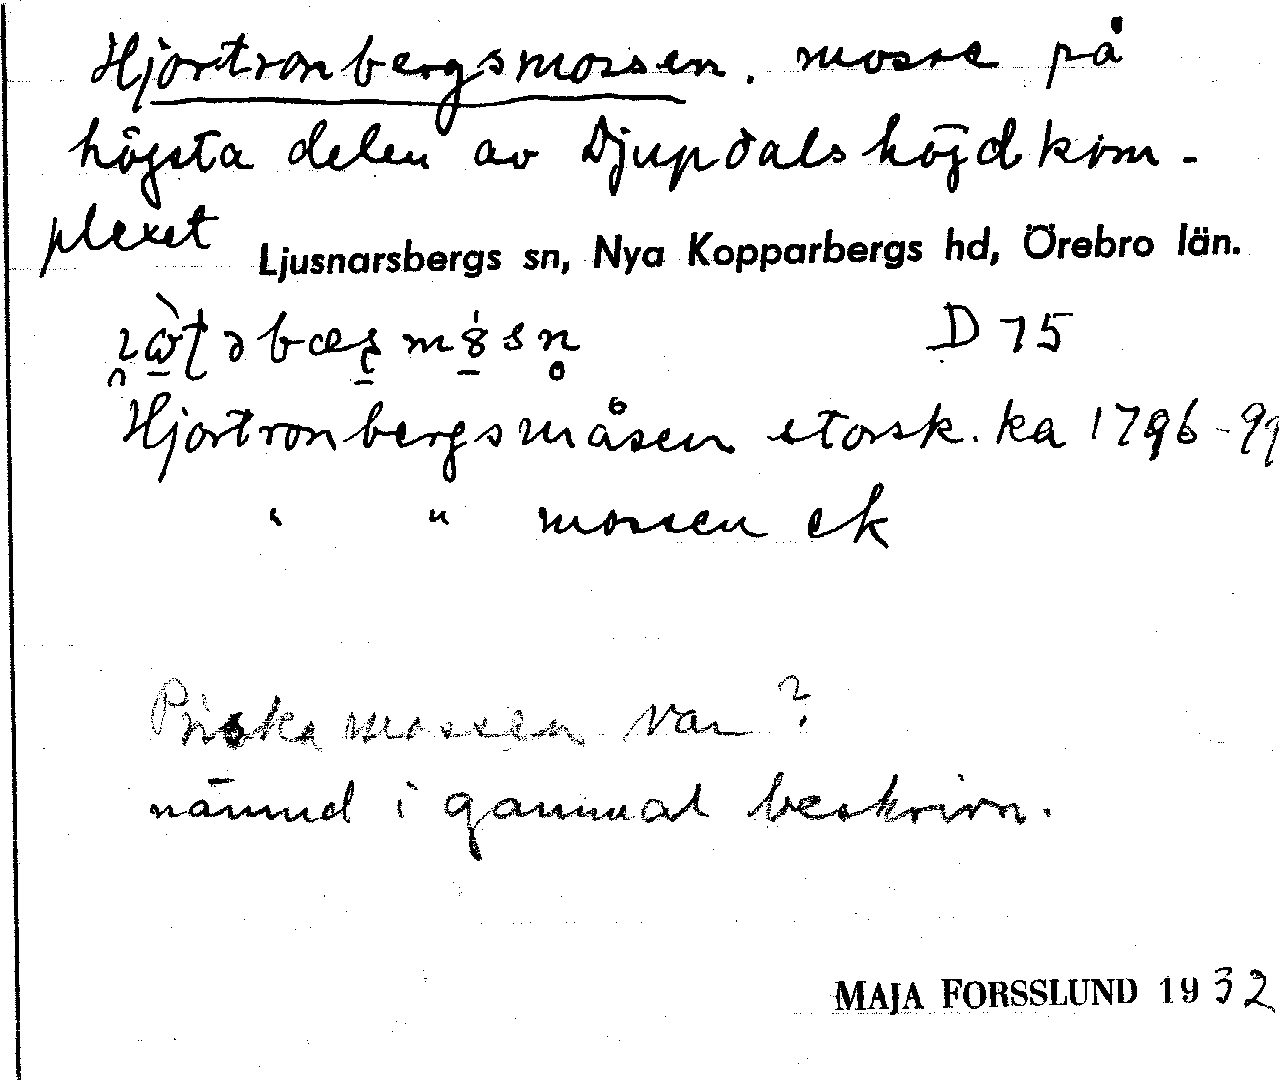 Hjortronbergsmossen. mosse på
högsta delen av Djupdals höjdkom-
plexet
Ljusnarsbergs sn, Nya Kopparbergs hd, Örebro län.
D 75
Hjortronbergsmåsen storsk. ka 1796-99
" " mossen ek
mossen var?
nämnd i gammal beskrivn.
MAJA FORSSLUND 1932